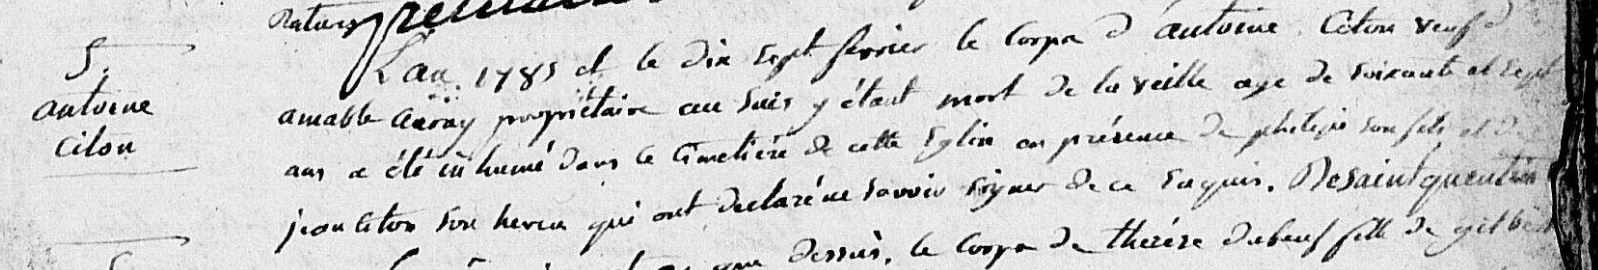 S.
antoine
Citon
L'an 1785 et le dix sept fevrier le Corps d'antoine Citon veuf d
amable auray propriétaire au Suis y étant mort de la veille age de soixante et sept
ans a été inhumé dans le Cimetière de cette Eglise en présence de philipe son fils et de
jean citon son neveu qui ont declaré ne savoir signer de ce enquis. Desaintquentin
que dessus, le Corps de thérèse dubeuf fille de gilbert